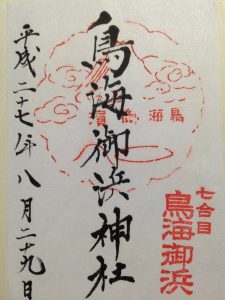 七合目
鳥海御浜
鳥海御浜神社
平成二十七年八月二十九日